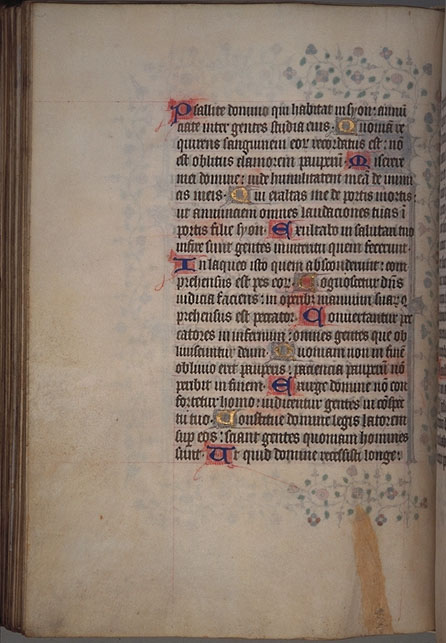 Psallite domino qui habitat in syon: annū
ciate inter gentes studia eius. Quoniā re
quirens sanguinem eor̄ recordatus est: nō
est oblitus clamorem pauperū. Miserere
mei domine: uide humilitatem meā de inimi
cis meis. Qui exaltas me de portis mortis:
ut annunciem omnes laudaciones tuas ī
portis filie syon. Exultabo in salutari tuo
infixe sunt gentes in interitu quem fecerunt.
In laqueo isto quem absconderunt: com
prehensus est pes eor̄. Cognoscetur dñs
iudicia faciens: in operibꝫ manuum suar̄ cō
prehensus est peccator. Conuertantur pec
catores in infernum: omnes gentes que ob
liuiscuntur deum. Quoniam non in finē
obliuio erit pauperis: paciencia pauperū nō
peribit in finem. Exurge domine nō con
fortetur homo: iudicentur gentes in cōspec
tu tuo. Constitue domine legis latorem
sup̄ eos: sciant gentes quoniam homines
sunt. Ut quid domine recessisti longe: